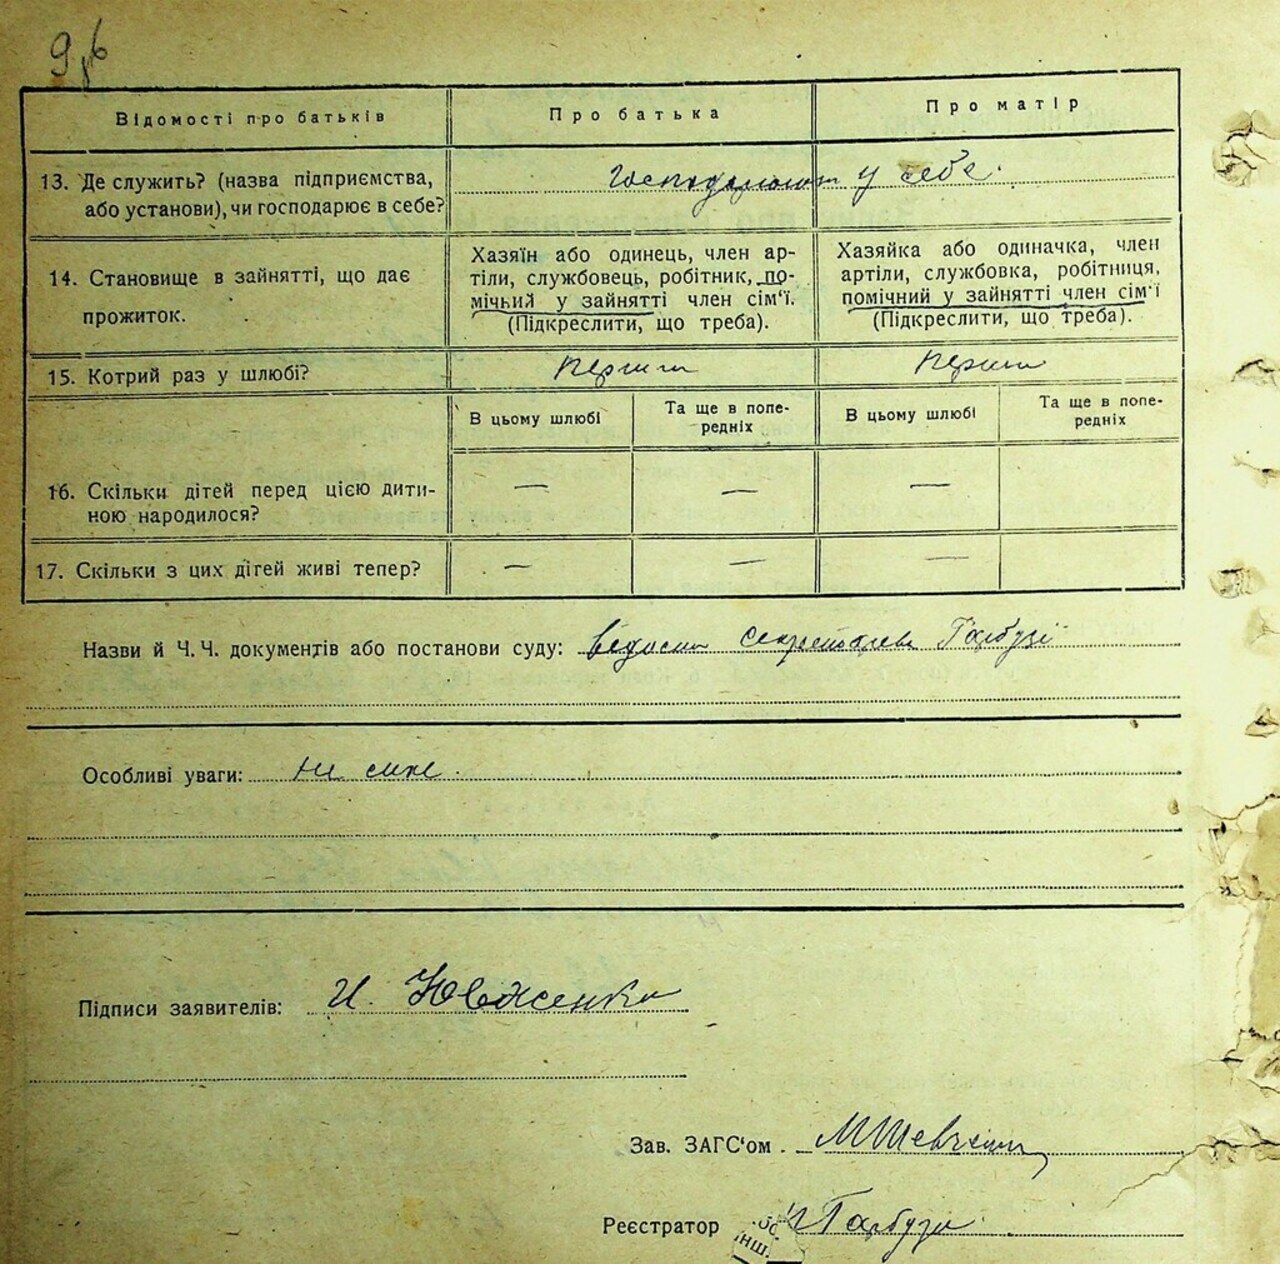 Відомості про батьків
Про батька
Про матір
13. Де служить? (назва підприємства,
або установи), чи господарює в себе?
у себе.
14. Становище в зайнятті, що дає
прожиток.
Хазяїн або одинець, член ар-
тіли, службовець, робітник, по-
мічний у зайнятті член сім'ї.
(Підкреслити, що треба).
Хазяйка або одиначка, член
артіли, службовка, робітниця,
помічний у зайнятті член сім'ї
(Підкреслити, що треба).
15. Котрий раз у шлюбі?
перший
перший
В цьому шлюбі
Та ще в попе-
редніх
В цьому шлюбі
Та ще в попе-
редніх
16. Скільки дітей перед цією дити-
ною народилося?
— — —
17. Скільки з цих дітей живі тепер?
— — —
Назви й Ч. Ч. документів або постанови суду: Гарбузі
Особливі уваги: не має.
Підписи заявителів:
Зав. ЗАГС'ом . М Шевченко
Реєстратор Гарбузи